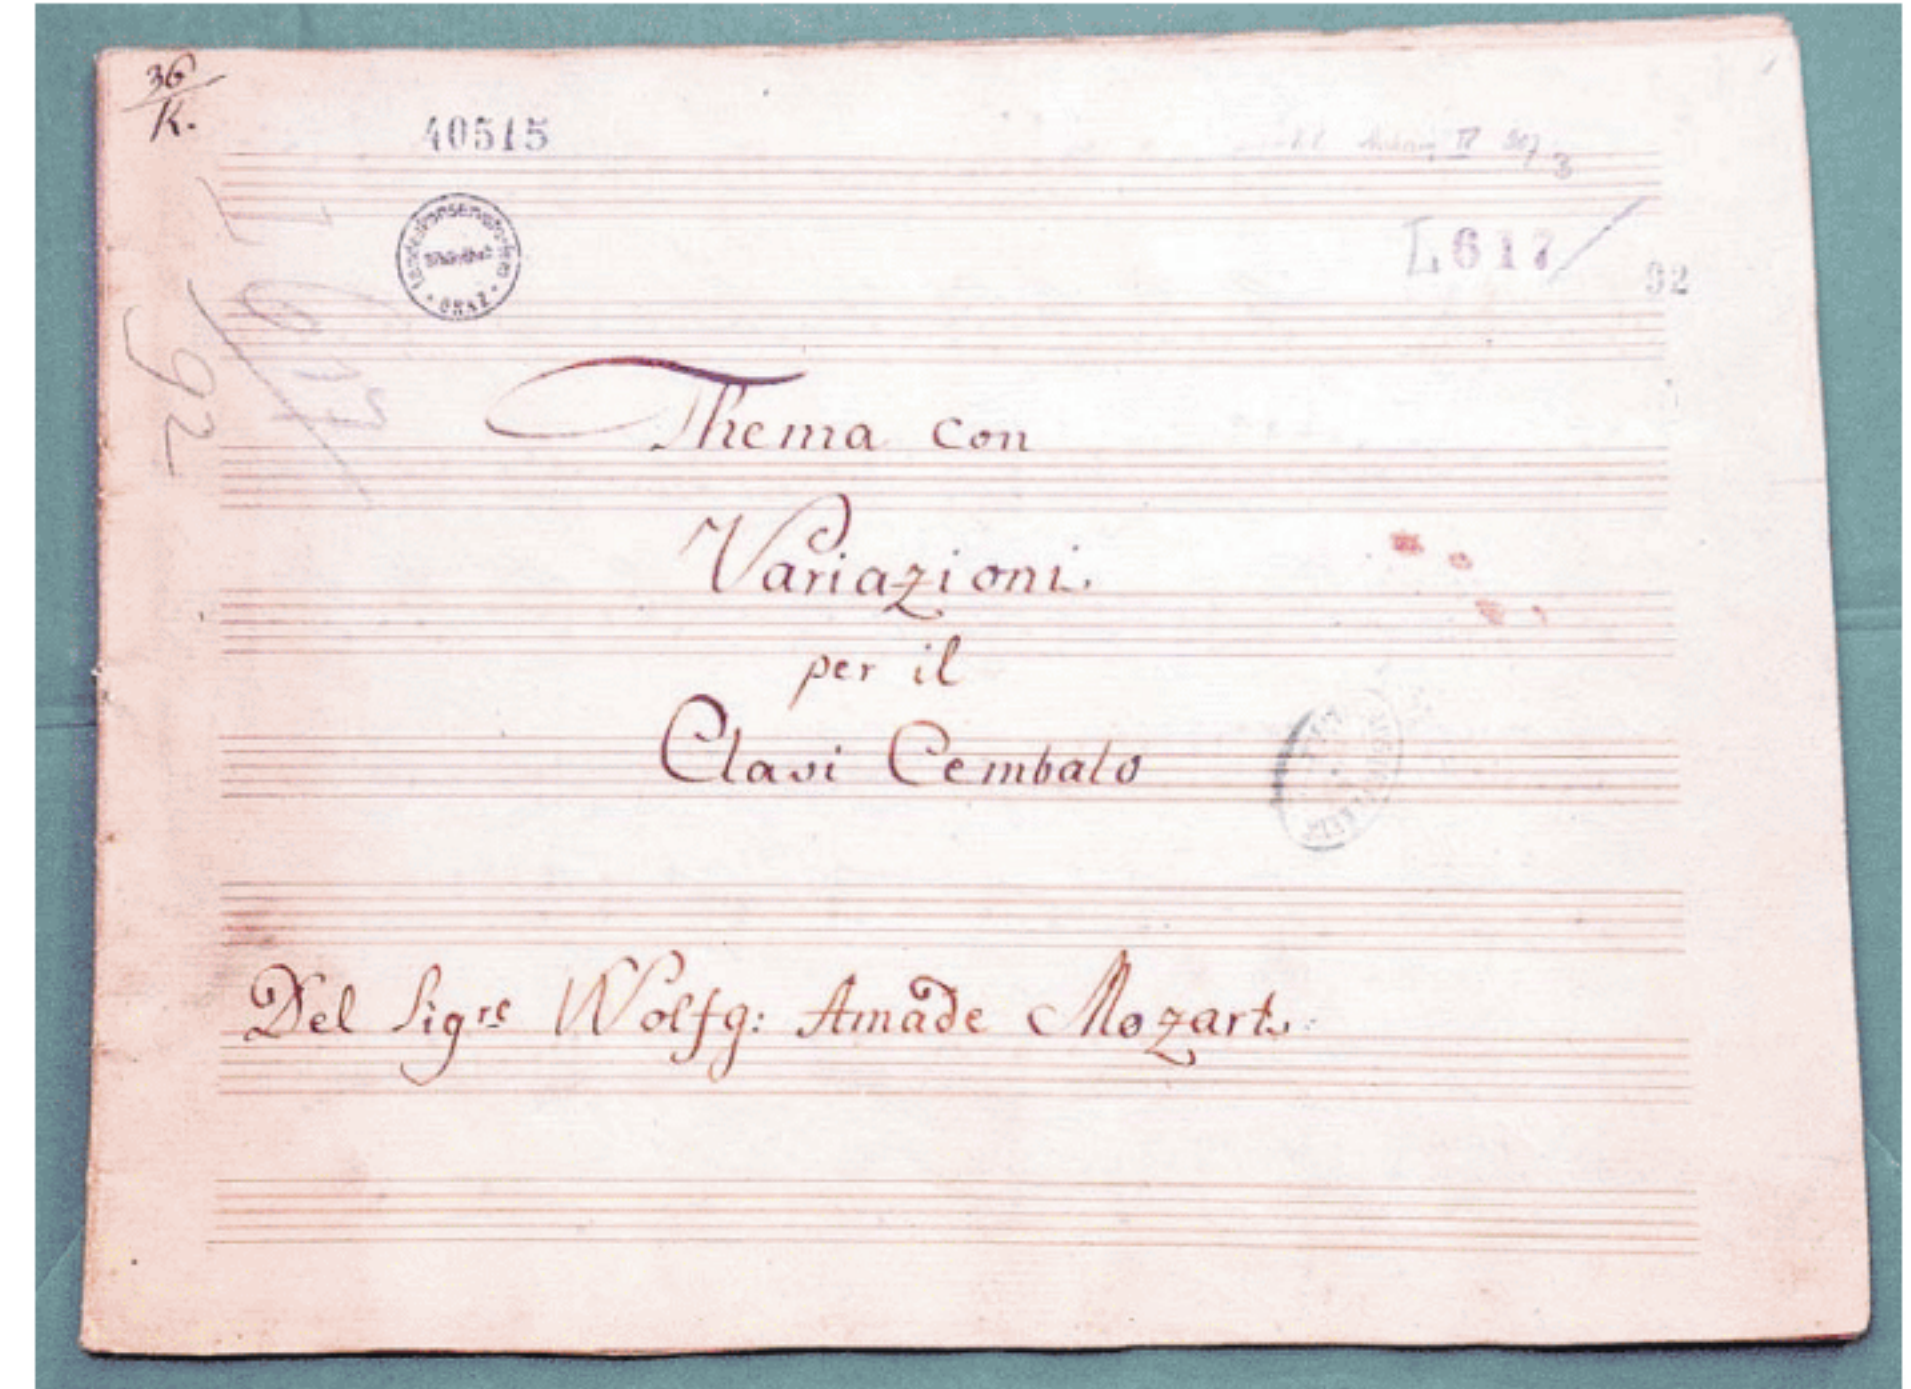 36
K.
40515
L 617
92
GRAZ
617
92
Thema con
Variazioni.
per il
Clavi Cembalo
Del Sigre Wolfg: Amade Mozart.